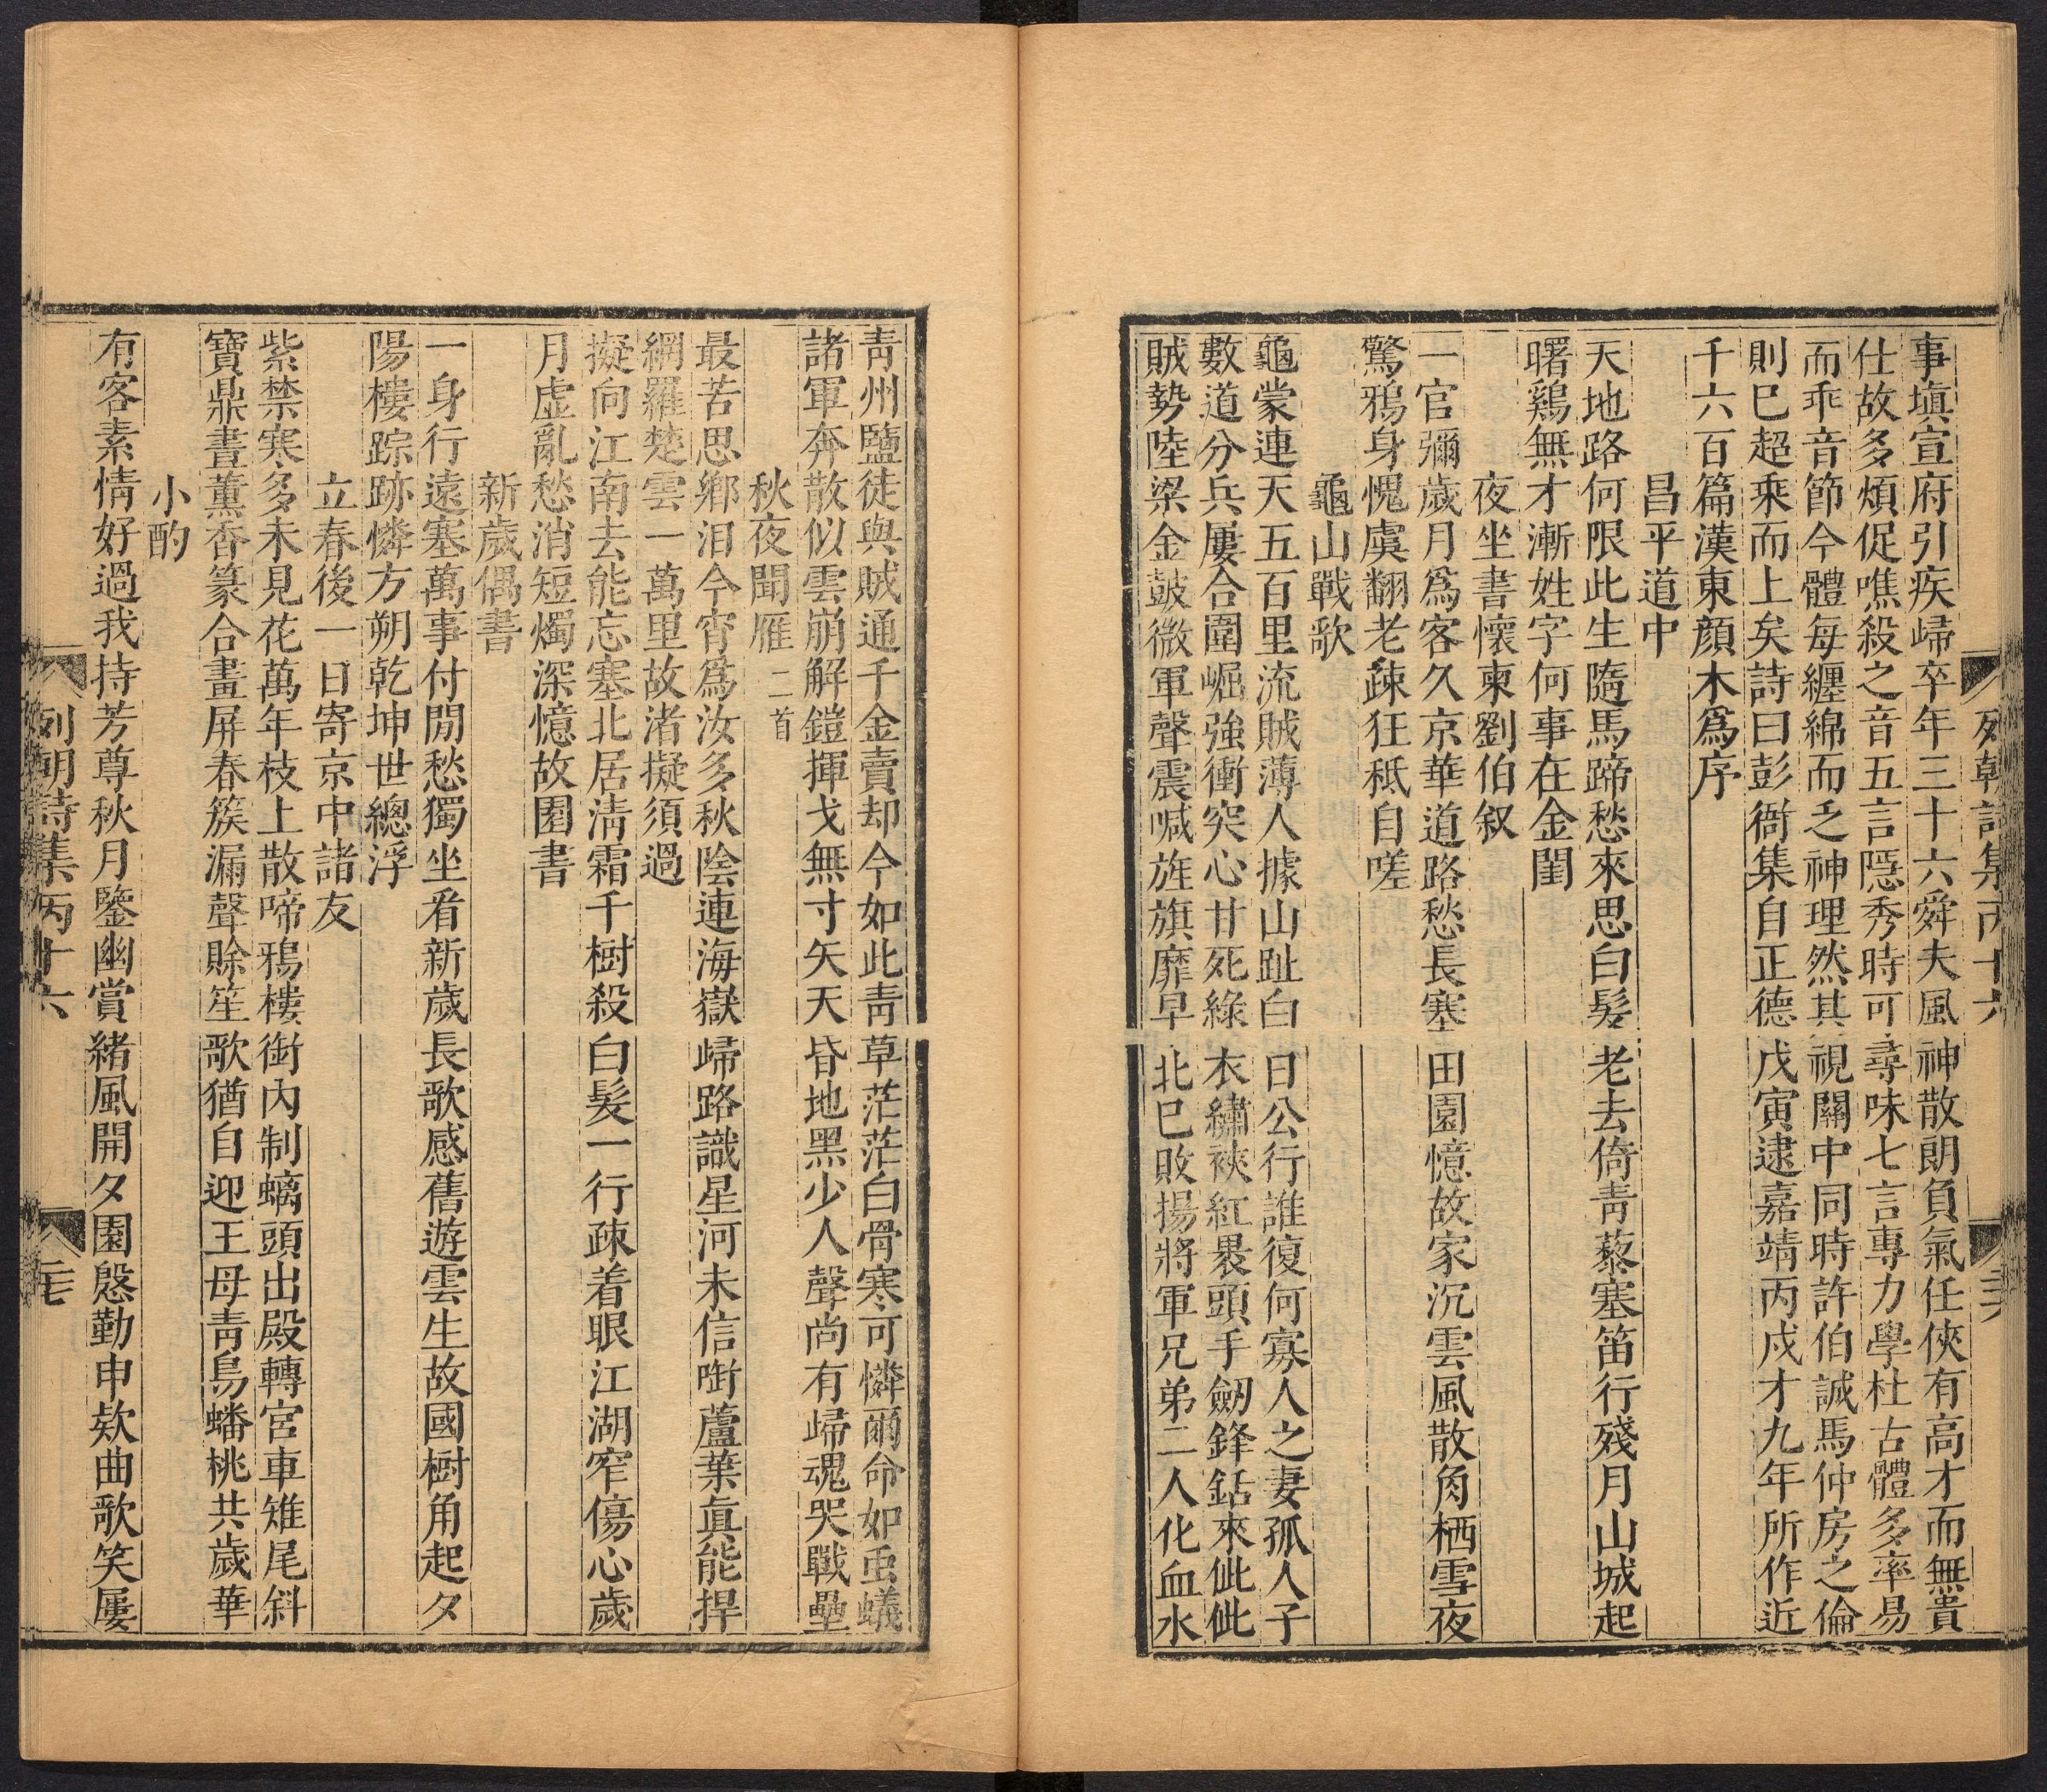 事塡宣府引疾歸卒年三十六舜夫風神散朗負氣任俠有高才而無貴
仕故多煩促噍殺之音五言隱秀時可尋味七言專力學杜古體多率易
而乖音節今體每纏綿而乏神理然其視關中同時許伯誠馬仲房之倫
則巳超乘而上矣詩曰彭衙集自正德戊寅逮嘉靖丙戍才九年所作近
千六百篇漢東顔木爲序
昌平道中
天地路何限此生隨馬蹄愁來思白髮老去倚靑藜塞笛行殘月山城起
曙鷄無才漸姓字何事在金閨
夜坐書懷柬劉伯叙
一官彌歲月爲客久京華道路愁長塞田園憶故家沉雲風散角栖雪夜
驚鴉身愧虞翻老疎狂秪自嗟
龜山戰歌
龜蒙連天五百里流賊薄人據山趾白日公行誰復何寡人之妻孤人子
數道分兵屢合圍崛強衝突心甘死綠衣繡裌紅褁頭手劒鋒銛來佌佌
賊勢陸梁金鼓微軍聲震喊旌旗靡早北巳敗揚將軍兄弟二人化血水
列朝詩集丙十六
青州鹽徒與賊通千金賣却今如此靑草茫茫白骨寒可憐爾命如䖝蟻
諸軍奔散似雲崩解鎧揮戈無寸矢天昏地黑少人聲尚有歸魂哭戰壘
秋夜聞雁二首
最苦思鄉泪今宵爲汝多秋陰連海嶽歸路識星河未信啣蘆葉眞能捍
網羅楚雲一萬里故渚擬須過
擬向江南去能忘塞北居淸霜千樹殺白髮一行疎着眼江湖窄傷心歲
月虛亂愁消短燭深憶故園書
新歲偶書
一身行遠塞萬事付閒愁獨坐看新歲長歌感舊遊雲生故國樹角起夕
陽樓踪跡憐方朔乾坤世總浮
立春後一日寄京中諸友
紫禁寒多未見花萬年枝上散啼鴉樓銜內制螭頭出殿轉宮車雉尾斜
寶鼎晝薰香篆合畫屏春簇漏聲賒笙歌猶自迎王母靑鳥蟠桃共歲華
小酌
有客素情好過我持芳尊秋月鑒幽賞緒風開夕園慇勤申欸曲歌笑屢
列朝詩集丙十六